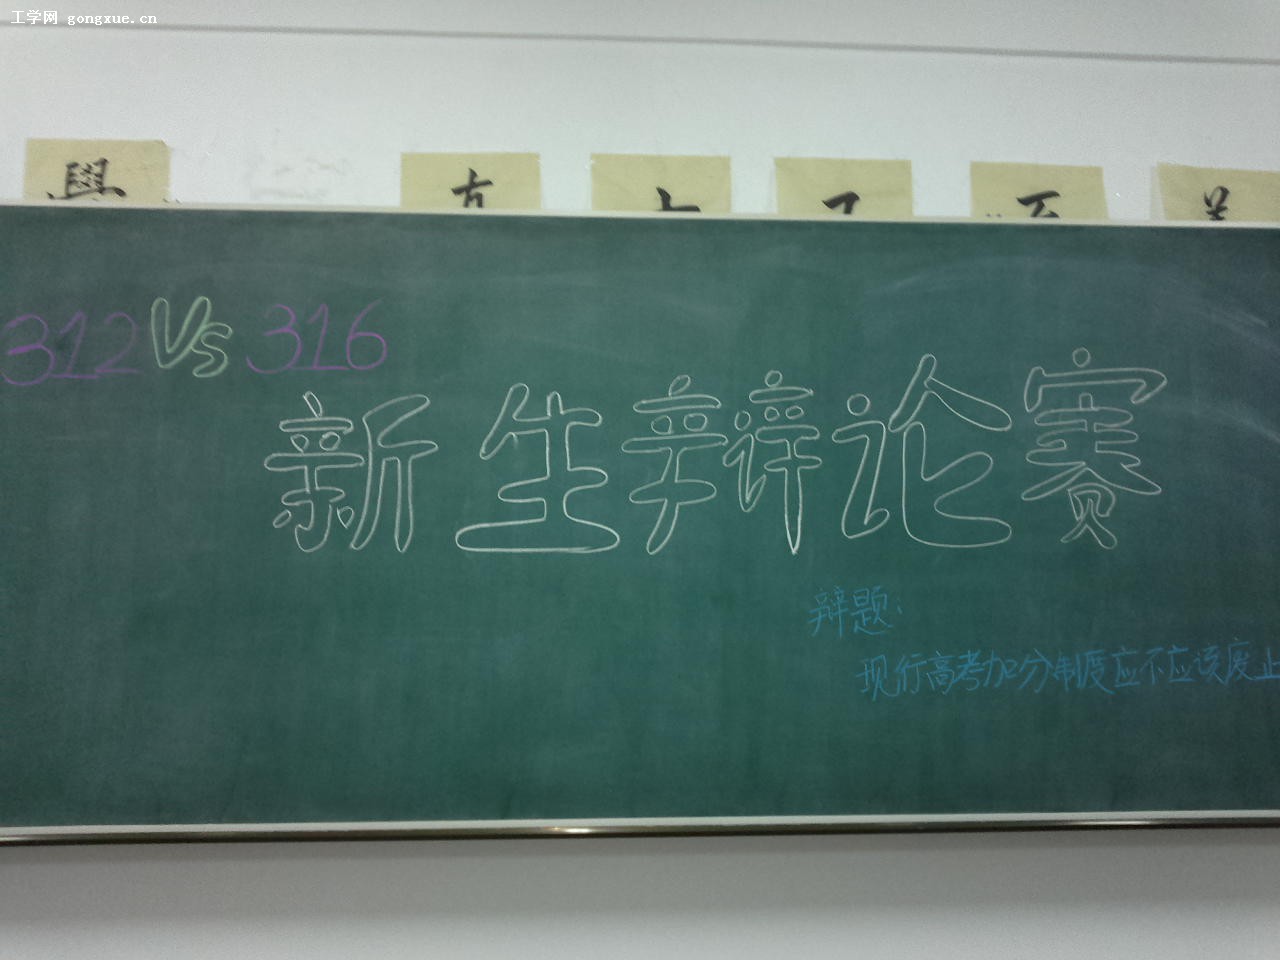 工学网 gongxue.cn
學
312 Vs 316
新生辩论赛
辩题:
现行高考加分制度应不应该废止